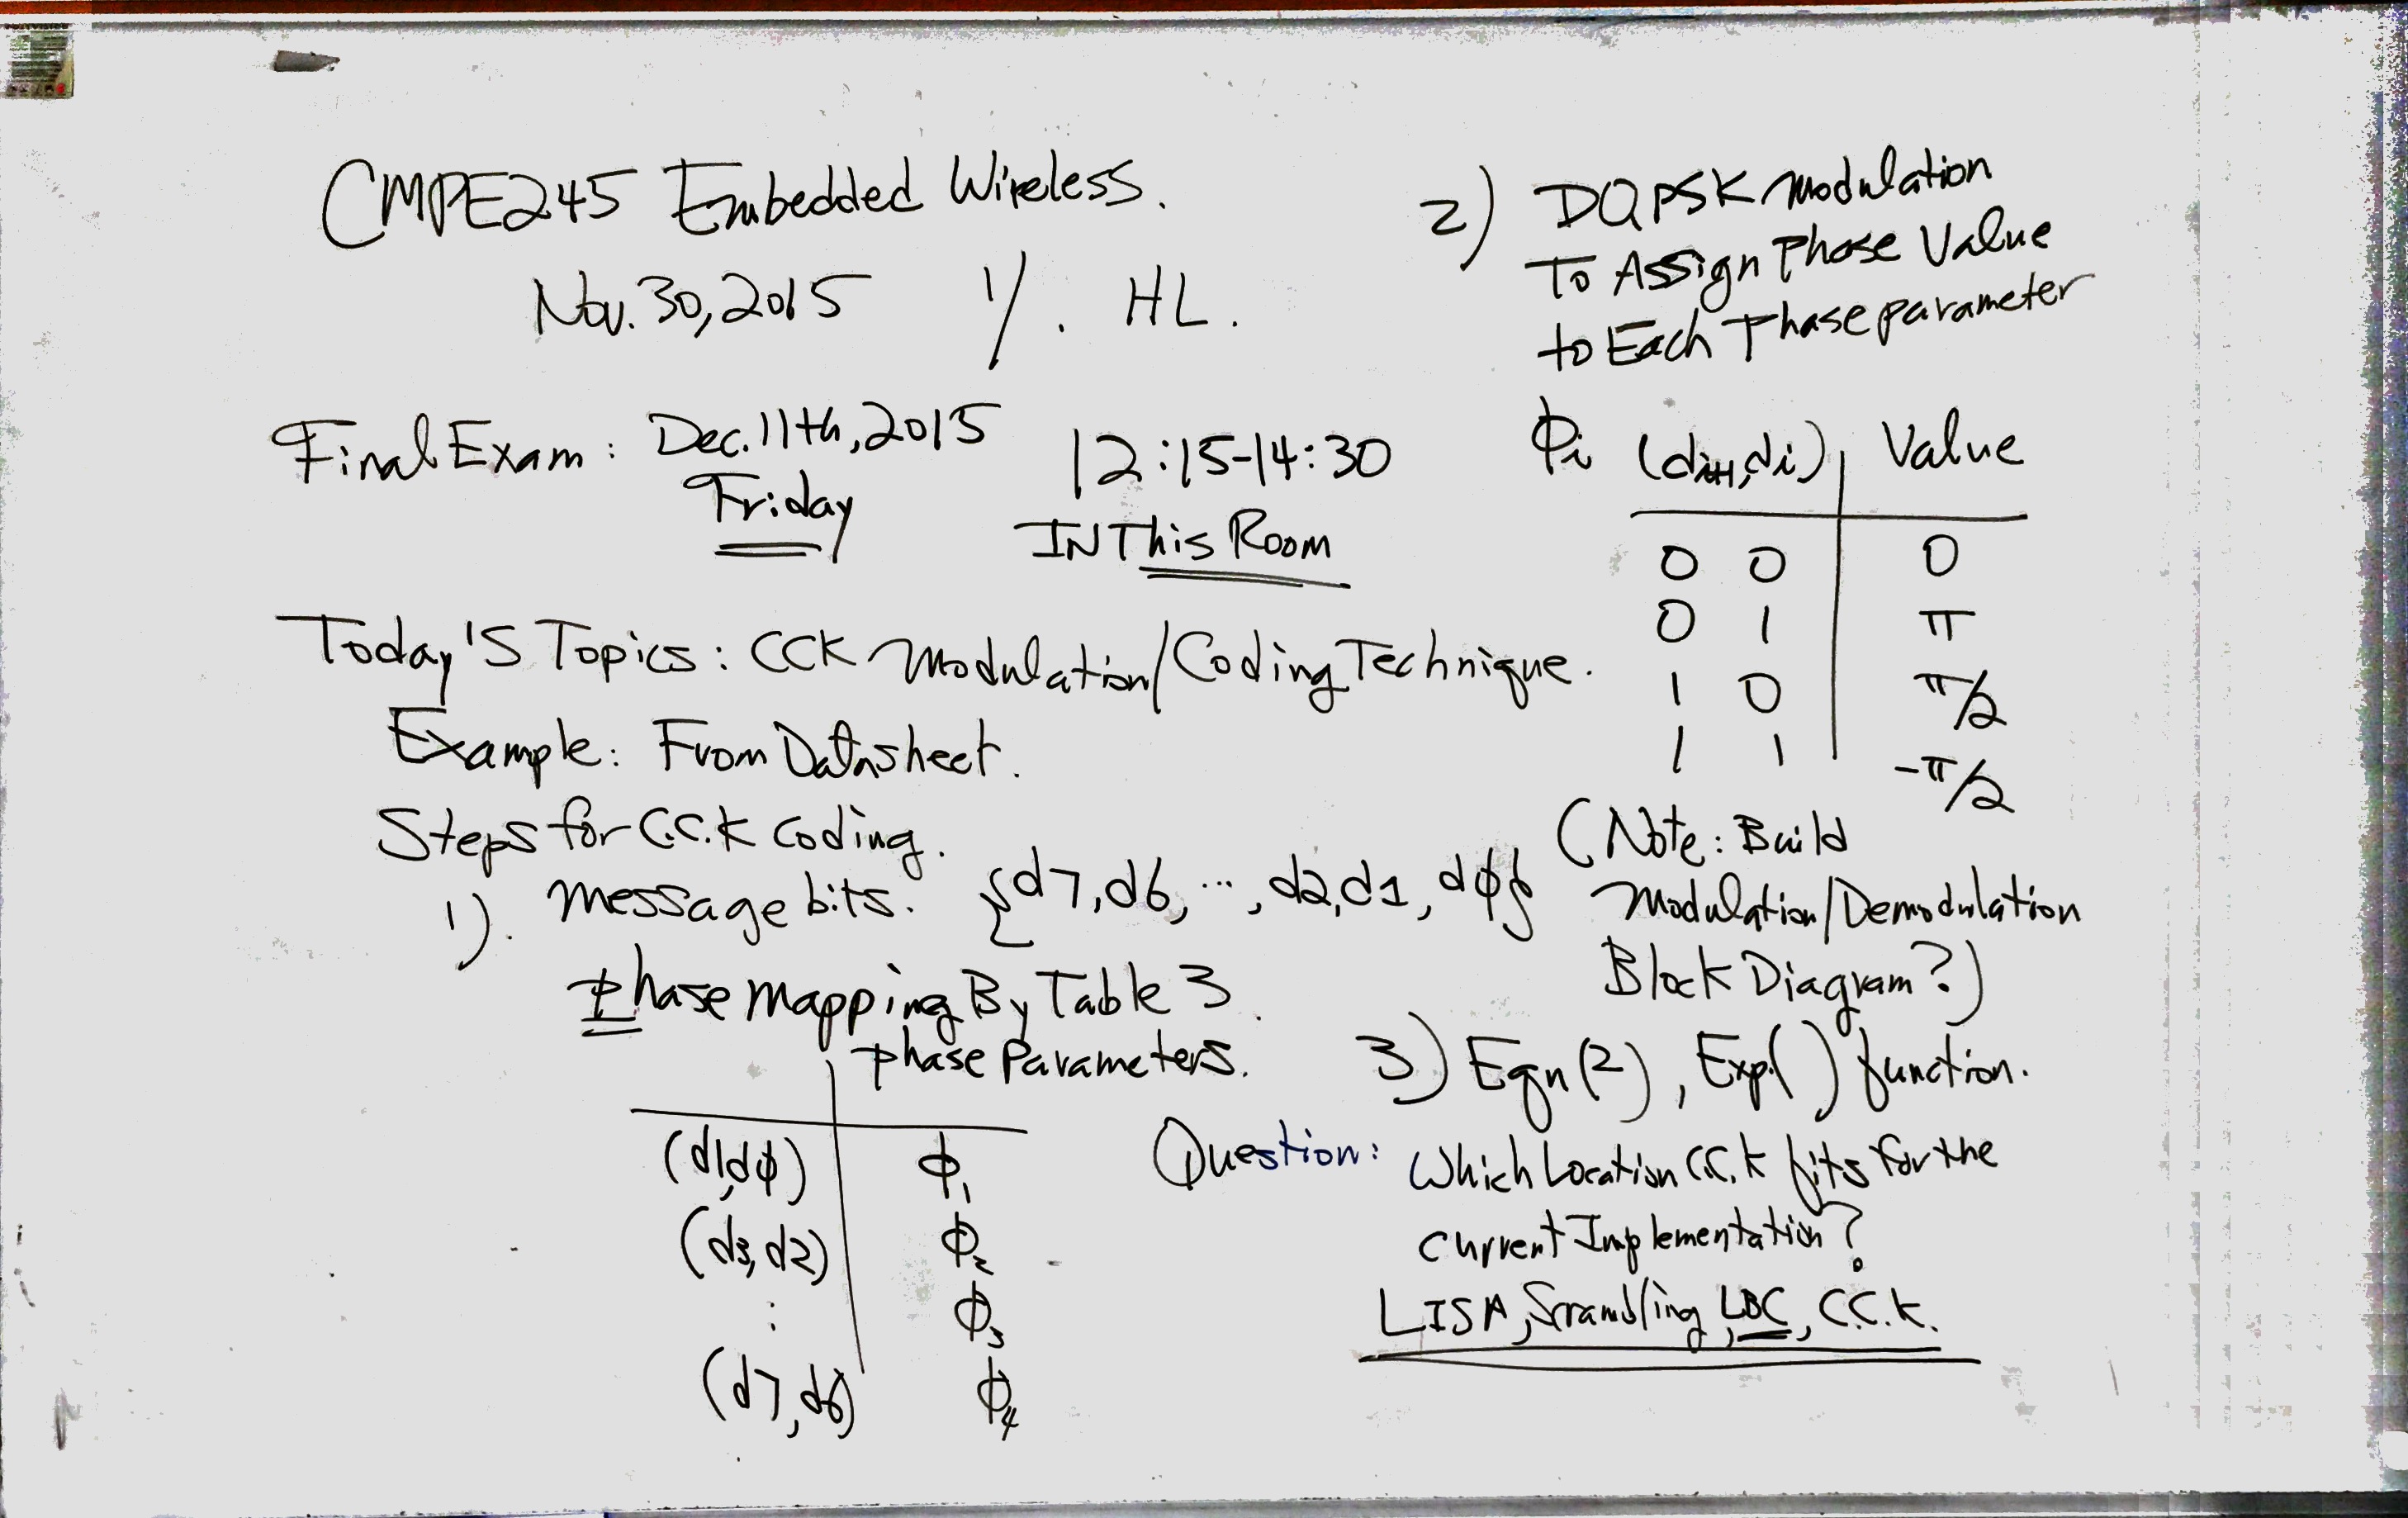 CMPE245 Embedded Wireless.
Nov. 30, 2015 1/. HL.
Final Exam: Dec. 11th, 2015 12:15-14:30
Friday
IN This Room
Today'S Topics: CCK Modulation/Coding Technique.
Example: From Datasheet.
Steps for C.C.K Coding.
1). Message bits. {d7, d6, ..., d2, d1, dϕ}
Phase Mapping By Table 3.
Phase Parameters.
(d1, dϕ) ϕ1
(d3, d2) ϕ2
: ϕ3
(d7, d6) ϕ4
2) DQPSK Modulation
To Assign Phase Value
to Each Phase parameter
ϕi (di+1, di) Value
0 0 0
0 1 π
1 0 π/2
1 1 -π/2
(Note: Build
Modulation/Demodulation
Block Diagram?)
3) Eqn (2), Exp.( ) function.
Question: Which Location C.C.K fits for the
current Implementation?
LISA, Scrambling, LBC, C.C.K.